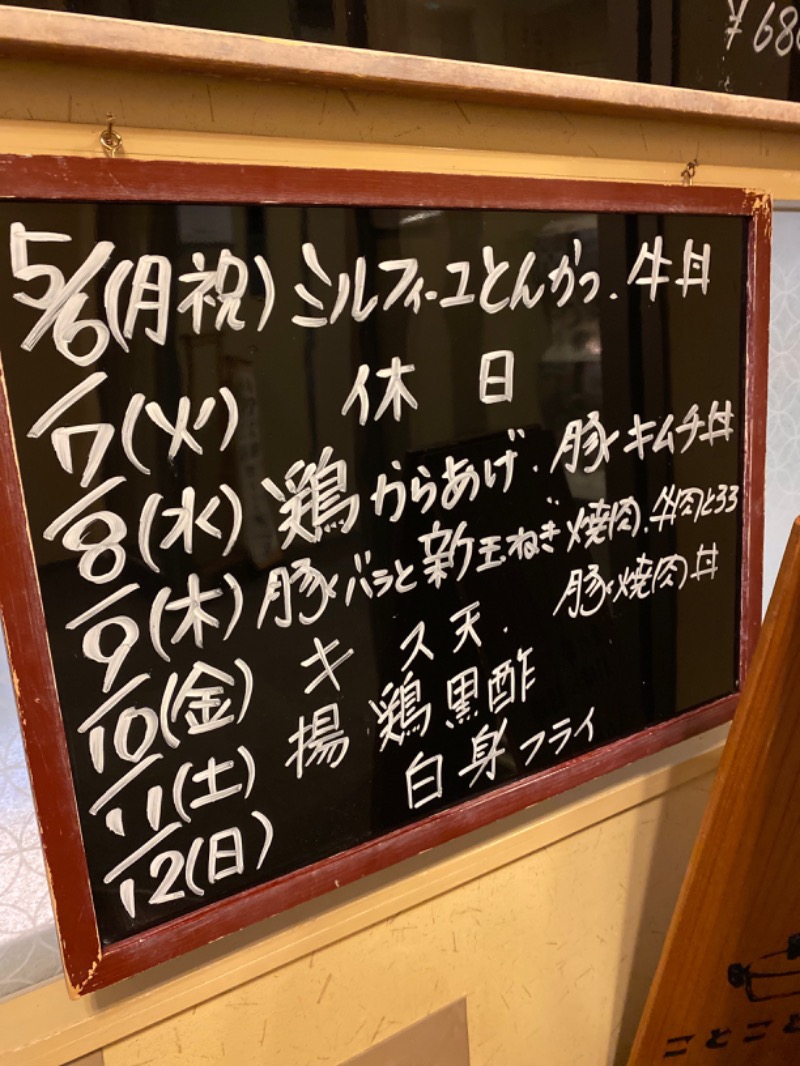 ¥680
5/6(月祝) ミルフィーユとんかつ.牛丼
/7(火) 休日
/8(水) 鶏からあげ.豚キムチ丼
/9(木) 豚バラと新玉ねぎ焼肉.牛肉とろろ
/10(金) キス天.豚焼肉丼
/11(土) 揚鶏黒酢
/12(日) 白身フライ
ことこと